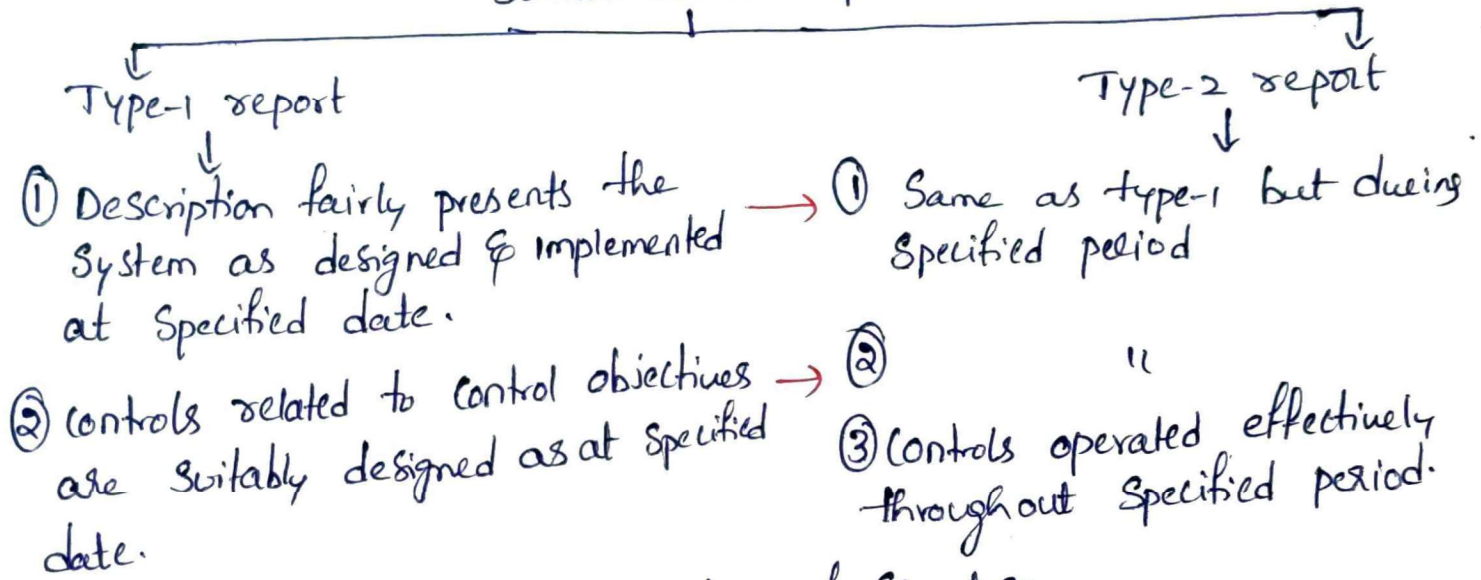 Type-1 report
Type-2 report
① Description fairly presents the
System as designed & implemented
at Specified date.
② Controls related to Control objectives
are Suitably designed as at Specified
date.
① Same as type-1 but during
Specified period
② "
③ Controls operated effectively
throughout Specified period.